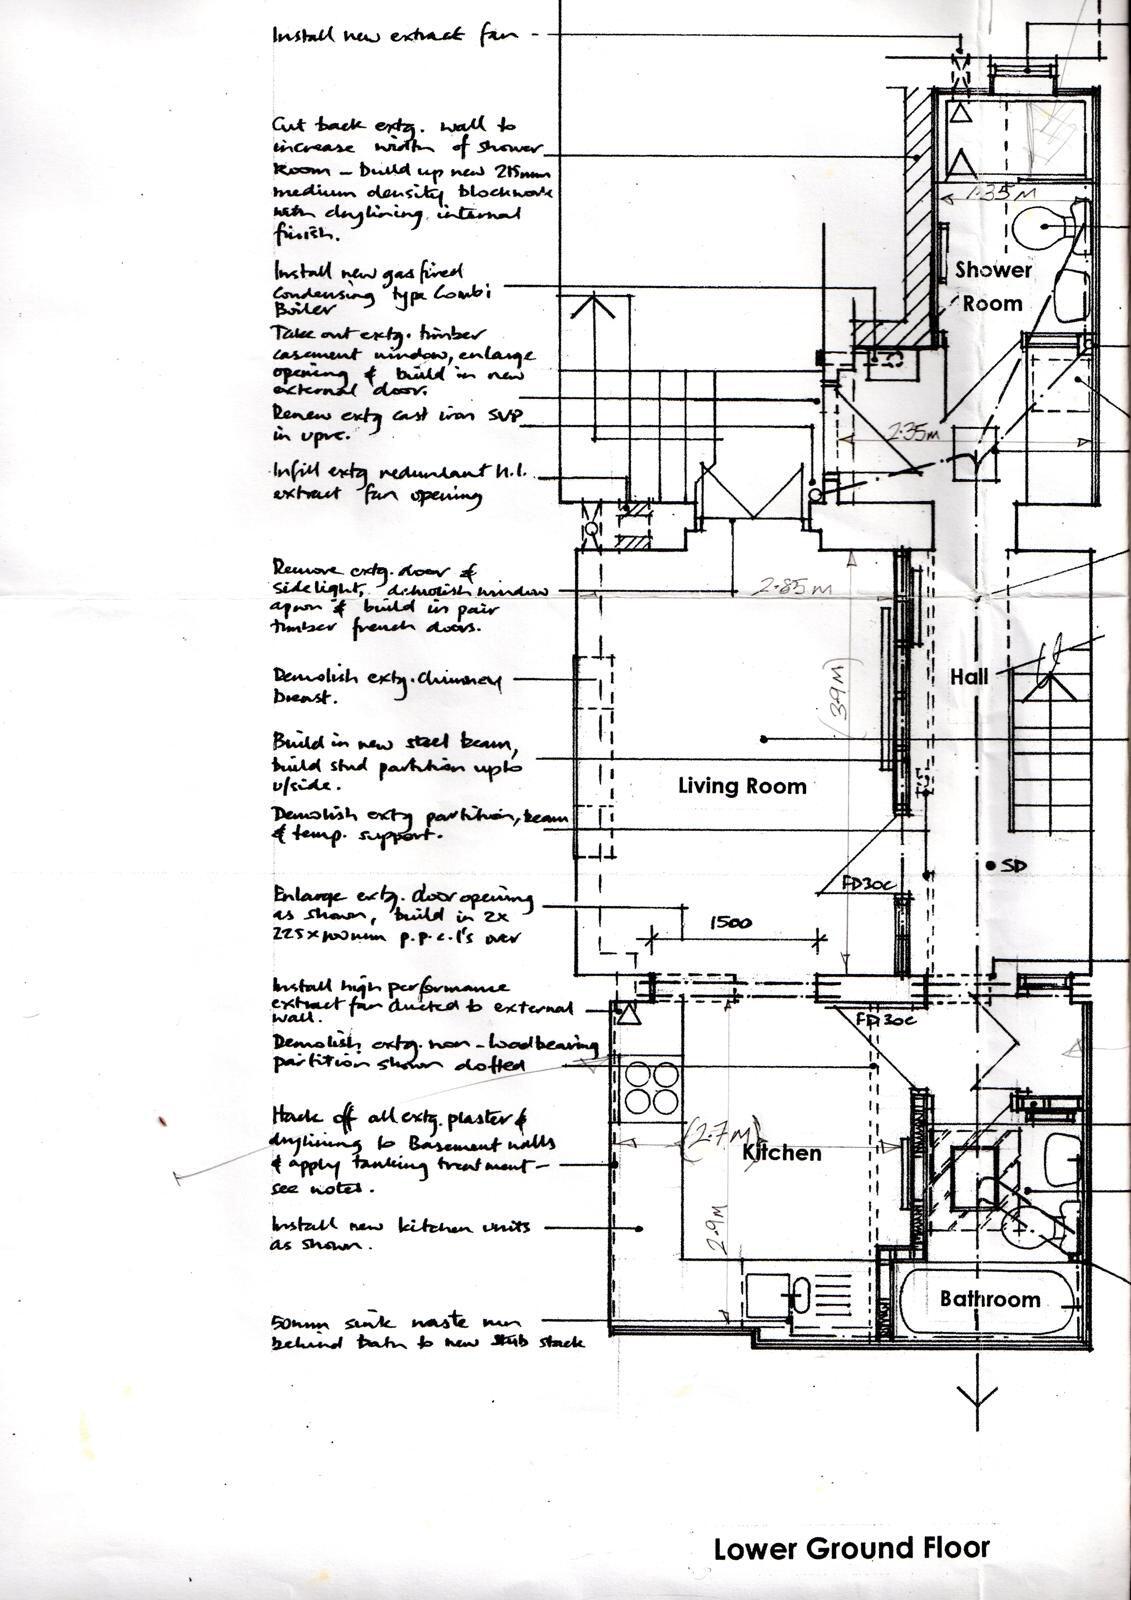 Install new extract fan -
Cut back extg. wall to
increase width of shower
Room - build up new 215mm
medium density blockwork
with drylining internal
finish.
Install new gas fired
Condensing type Combi
Boiler
Take out extg. timber
casement window, enlarge
opening & build in new
external door.
Renew extg cast iron SVP
in upvc.
Infill extg redundant H.L.
extract fan opening
Remove extg. door &
sidelight, demolish window
apron & build in pair
timber french doors.
Demolish extg. chimney
breast.
Build in new steel beam,
build stud partition upto
u/side.
Demolish extg partition, beam
& temp. support.
Enlarge extg. door opening
as shown, build in 2x
225x100mm p.p.c.l's over
Install high performance
extract fan ducted to external
wall.
Demolish extg. non-loadbearing
partition shown dotted
Hack off all extg. plaster &
drylining to Basement walls
& apply tanking treatment -
see notes.
Install new kitchen units
as shown.
50mm sink waste run
behind bath to new stub stack
1.35M
Shower
Room
2.35M
2.85M
(3.9M)
Hall
Living Room
SD
FD30C
1500
FD30C
(2.7M)
Kitchen
2.9M
Bathroom
Lower Ground Floor